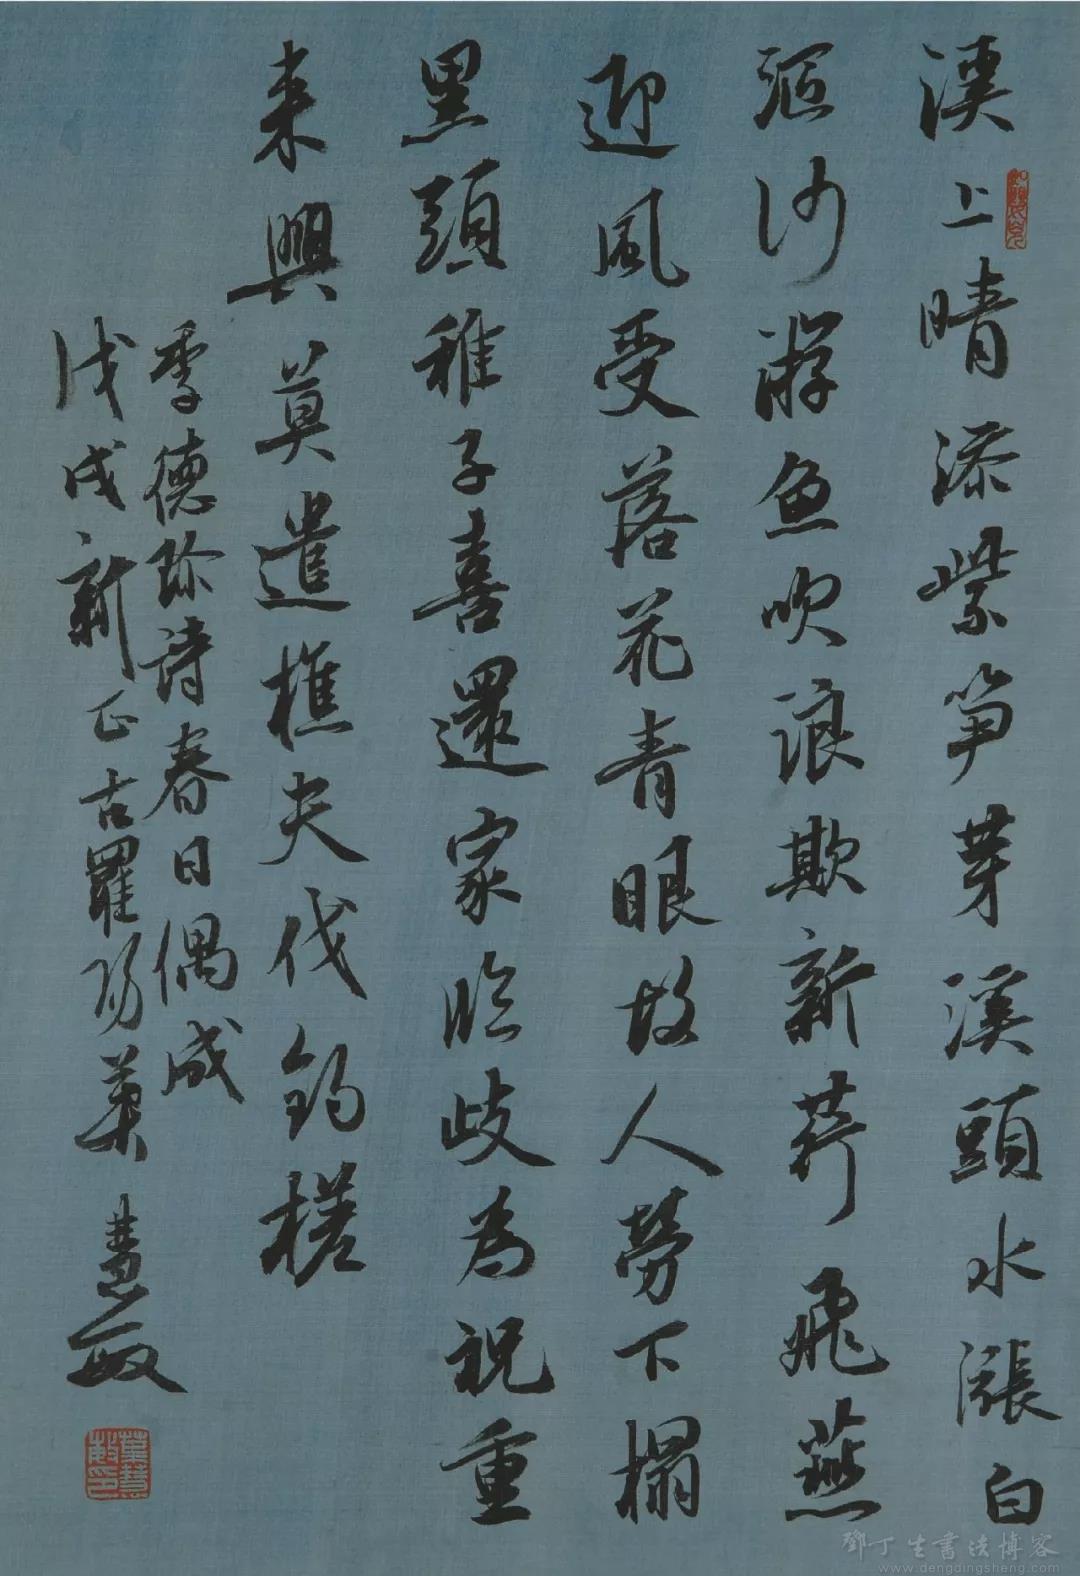 溪上晴添紫笋芽溪頭水漲白
漚沙游魚吹浪欺新荇飛燕
迎風受落花青眼故人勞下榻
黑頭稚子喜還家臨歧為祝重
來興莫遣樵夫伐釣槎
李德珍詩春日偶成
戊戌新正古羅陽葉慧敏
葉慧敏印
鄧丁生書法博客
www.dengdingsheng.com